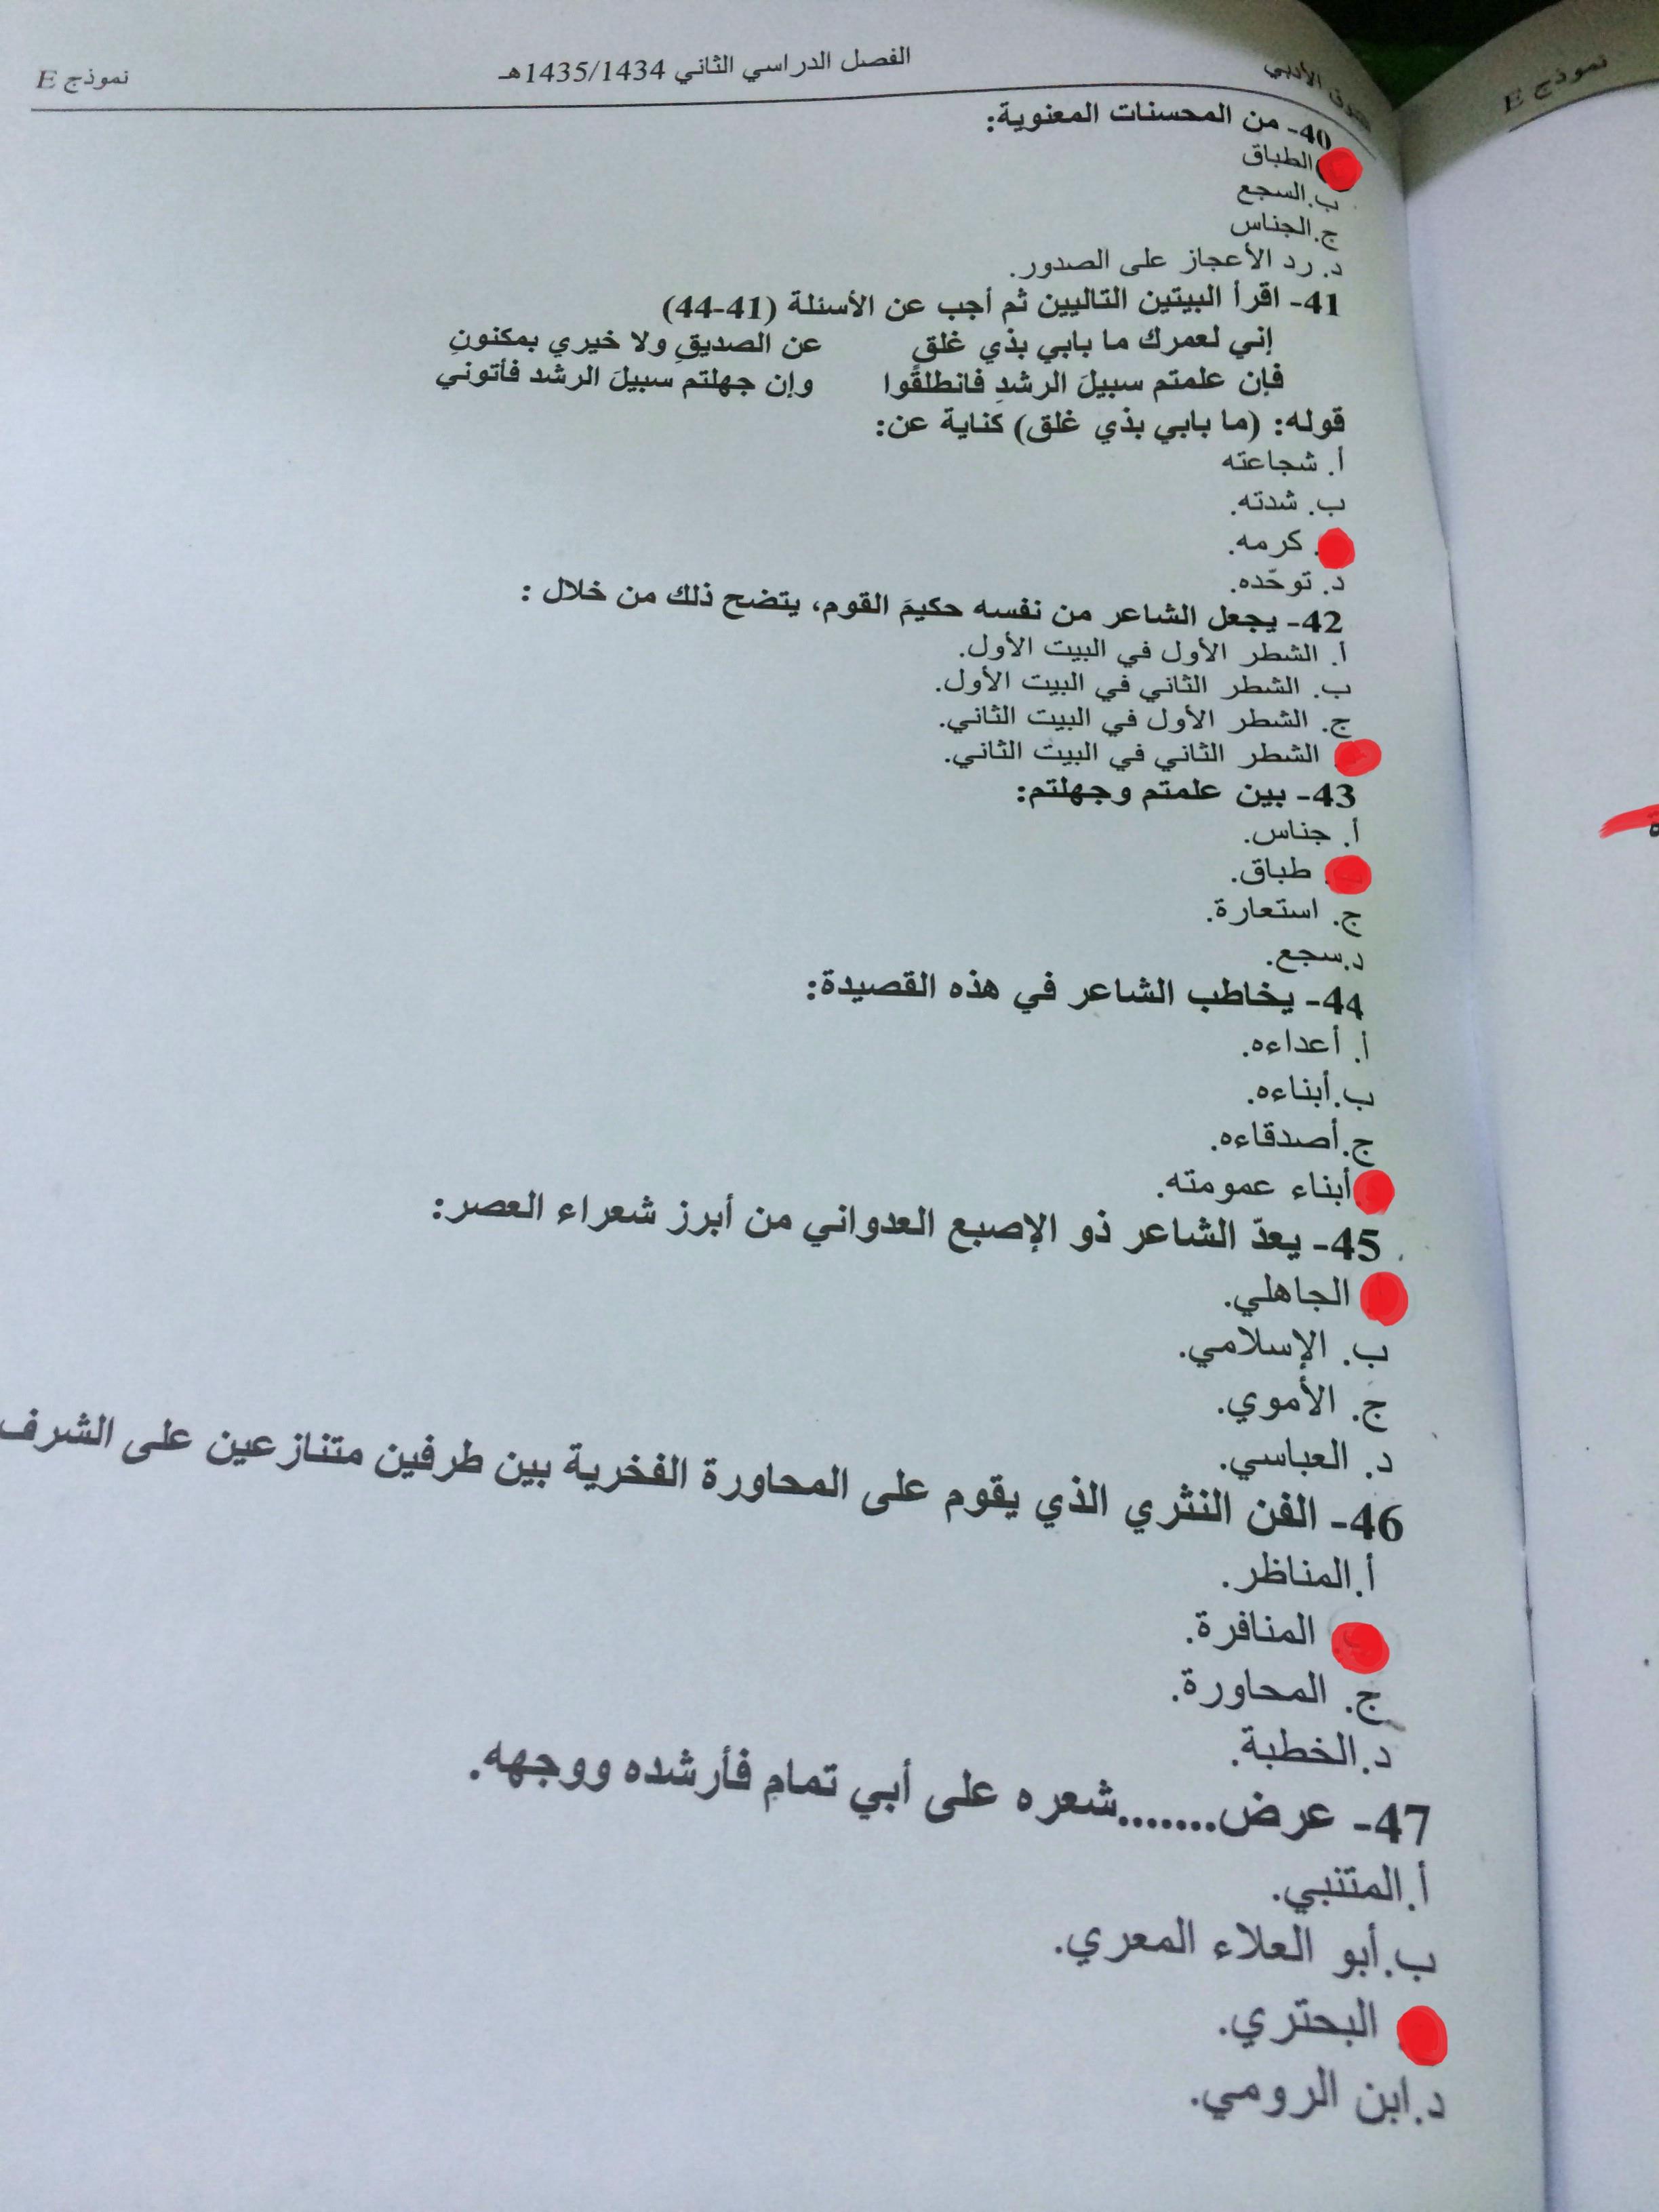 نموذج E
الأدبي
الفصل الدراسي الثاني 1435/1434هـ
نموذج E
40- من المحسنات المعنوية:
الطباق
ب.السجع
ج.الجناس
د. رد الأعجاز على الصدور.
41- اقرأ البيتين التاليين ثم أجب عن الأسئلة (41-44)
إني لعمرك ما بابي بذي غلقٍ عن الصديقِ ولا خيري بمكنونِ
فإن علمتم سبيلَ الرشدِ فانطلقُوا وإن جهلتم سبيلَ الرشد فأتوني
قوله: (ما بابي بذي غلق) كناية عن:
أ. شجاعته
ب. شدته.
. كرمه.
د. توحّده.
42- يجعل الشاعر من نفسه حكيمَ القوم، يتضح ذلك من خلال :
أ. الشطر الأول في البيت الأول.
ب. الشطر الثاني في البيت الأول.
ج. الشطر الأول في البيت الثاني.
الشطر الثاني في البيت الثاني.
43- بين علمتم وجهلتم:
أ. جناس.
. طباق.
ج. استعارة.
د.سجع.
44- يخاطب الشاعر في هذه القصيدة:
أ. أعداءه.
ب.أبناءه.
ج.أصدقاءه.
أبناء عمومته.
45- يعدّ الشاعر ذو الإصبع العدواني من أبرز شعراء العصر:
الجاهلي.
ب. الإسلامي.
ج. الأموي.
د. العباسي.
46- الفن النثري الذي يقوم على المحاورة الفخرية بين طرفين متنازعين على الشرف
أ.المناظر.
ب. المنافرة.
ج. المحاورة.
د.الخطبة.
47- عرض.......شعره على أبي تمام فأرشده ووجهه.
أ.المتنبي.
ب.أبو العلاء المعري.
البحتري.
د.ابن الرومي.